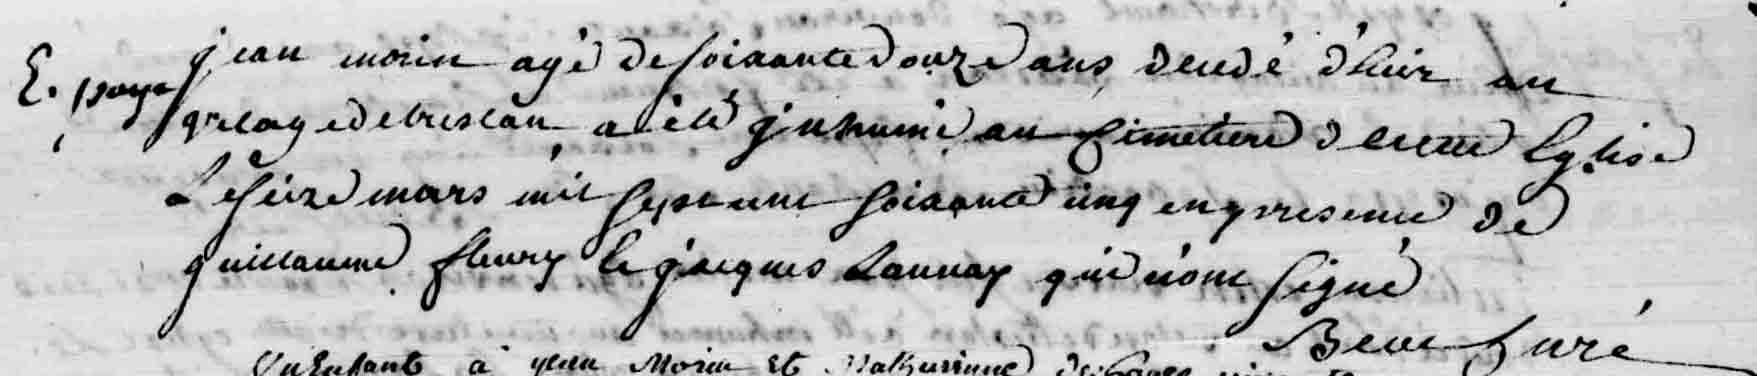 jean morin agé de soixante douze ans decedé d'hier au
E. paye
vilage de breslau a été jnhumé au Cimetiere de cette Eglise
Le seize mars mil sept cent soixante cinq en presence de
guillaume fleury et jacques Launay qui n'ont signé
Beue Curé
Un Enfant à jean Morin Et Mathurinne